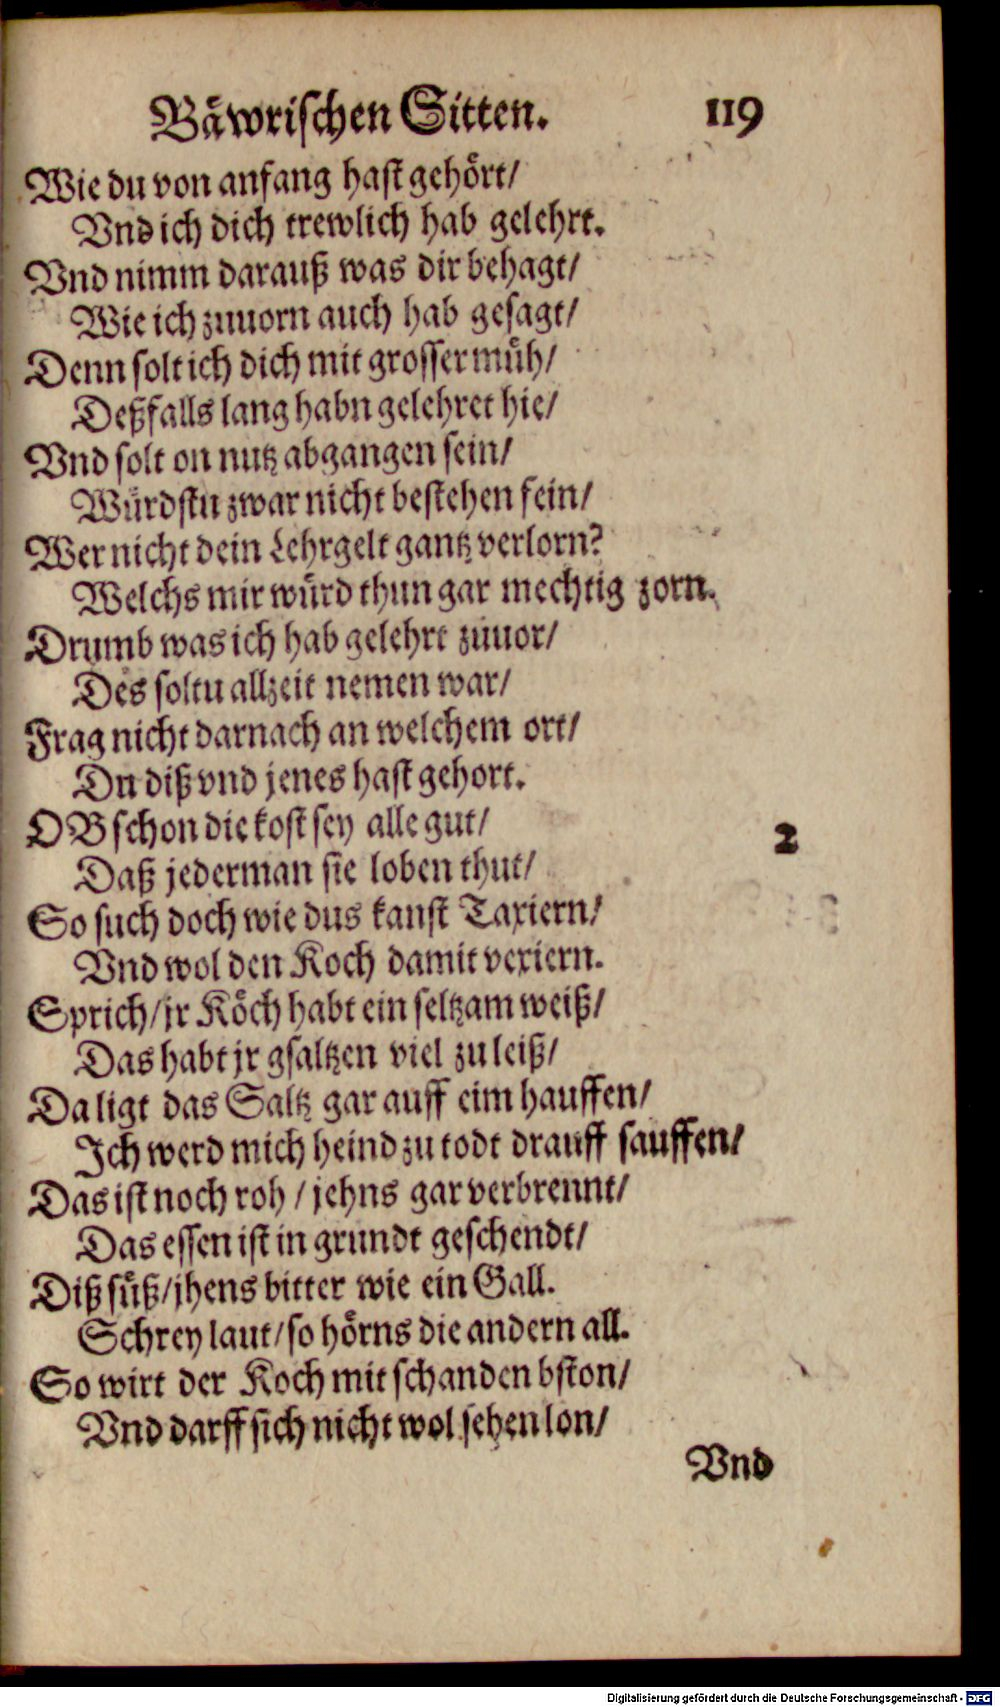 Bäwrischen Sitten. 119
Wie du von anfang hast gehört/
Vnd ich dich trewlich hab gelehrt.
Vnd nimm darauß was dir behagt/
Wie ich zuuorn auch hab gesagt/
Denn solt ich dich mit grosser müh/
Deßfalls lang habn gelehret hie/
Vnd solt on nutz abgangen sein/
Würdstu zwar nicht bestehen fein/
Wer nicht dein Lehrgelt gantz verlorn?
Welchs mir würd thun gar mechtig zorn.
Drumb was ich hab gelehrt zuuor/
Des soltu allzeit nemen war/
Frag nicht darnach an welchem ort/
Du diß vnd jenes hast gehort.
OB schon die kost sey alle gut/ 2
Daß jederman sie loben thut/
So such doch wie dus kanst Taxiern/
Vnd wol den Koch damit vexiern.
Sprich/ jr Köch habt ein seltzam weiß/
Das habt jr gsaltzen viel zu leiß/
Da ligt das Saltz gar auff eim hauffen/
Ich werd mich heind zu todt drauff sauffen/
Das ist noch roh / jehns gar verbrennt/
Das essen ist in grundt geschendt/
Diß süß/ jhens bitter wie ein Gall.
Schrey laut/ so hörns die andern all.
So wirt der Koch mit schanden bston/
Vnd darff sich nicht wol sehen lon/
Vnd
Digitalisierung gefördert durch die Deutsche Forschungsgemeinschaft - DFG